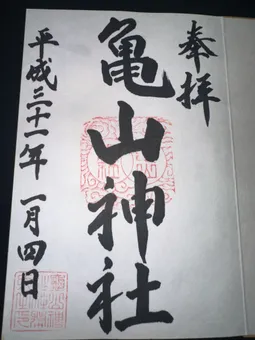 奉拝
亀山神社
平成三十一年 一月四日